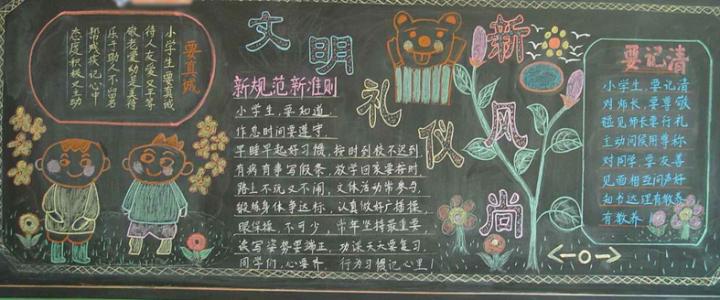 文明礼仪新风尚
要真诚
小学生要真诚
待人友爱又平等
敬老爱幼是美德
乐于助人不留名
帮残疾记心中
态度积极又主动
新规范新准则
小学生，要知道，
作息时间要遵守，
早睡早起好习惯，按时到校不迟到
有病有事写假条，放学回家要按时
路上不玩又不闹，文体活动常参与，
锻炼身体争达标，认真做好广播操，
眼保操，不可少，常年坚持最重要
读写姿势要端正，功课天天要复习，
同学们，心要齐，行为习惯记心里！
要记清
小学生，要记清
对师长，要尊敬
碰见师长要行礼
主动问候用尊称
对同学，要友善
见面相互问声好
知书达理有教养
有教养！